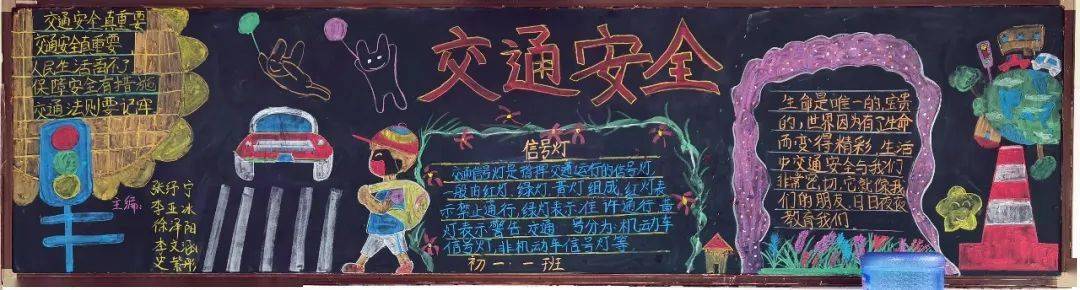 交通安全真重要
交通安全真重要
人民生活离不了
保障安全有措施
交通法则要记牢
主编:
张纾宁
李亚冰
徐泽阳
李文涵
史紫彤
交通安全
信号灯
交通信号灯是指挥交通运行的信号灯,
一般由红灯,绿灯,黄灯组成,红灯表
示禁止通行,绿灯表示准许通行,黄
灯表示警告 交通 号分为:机动车
信号灯,非机动车信号灯等
初一·一班
生命是唯一的,宝贵
的,世界因为有了生命
而变得精彩,生活
中交通安全与我们
非常密切,它就像我
们的朋友,日日夜夜
教育我们